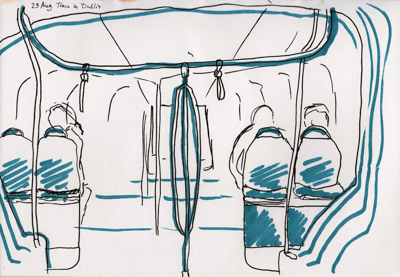 25 Aug Train to Dublin